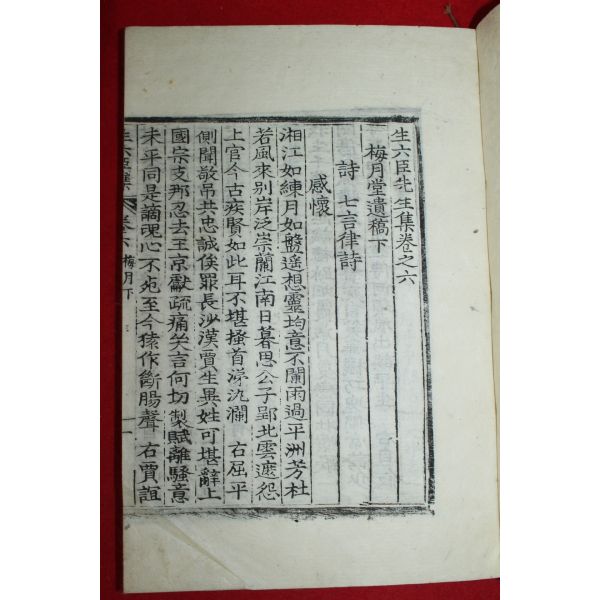 生六臣先生集卷之六
梅月堂遺稿下
詩 七言律詩
感懷
湘江如練月如盤遥想靈均意不闌雨過平洲芳杜
若風來別岸泛崇蘭江南日暮思公子郢北雲遮怨
上官今古疾賢如此耳不堪搔首淚汍瀾 右屈平
側聞敬吊共忠誠俟罪長沙漢賈生異姓可堪辭上
國宗支那忍去王京獻疏痛哭言何切製賦離騷意
未平同是謫魂心不死至今猿作斷腸聲 右賈誼
生六臣集 卷六 梅月下 一